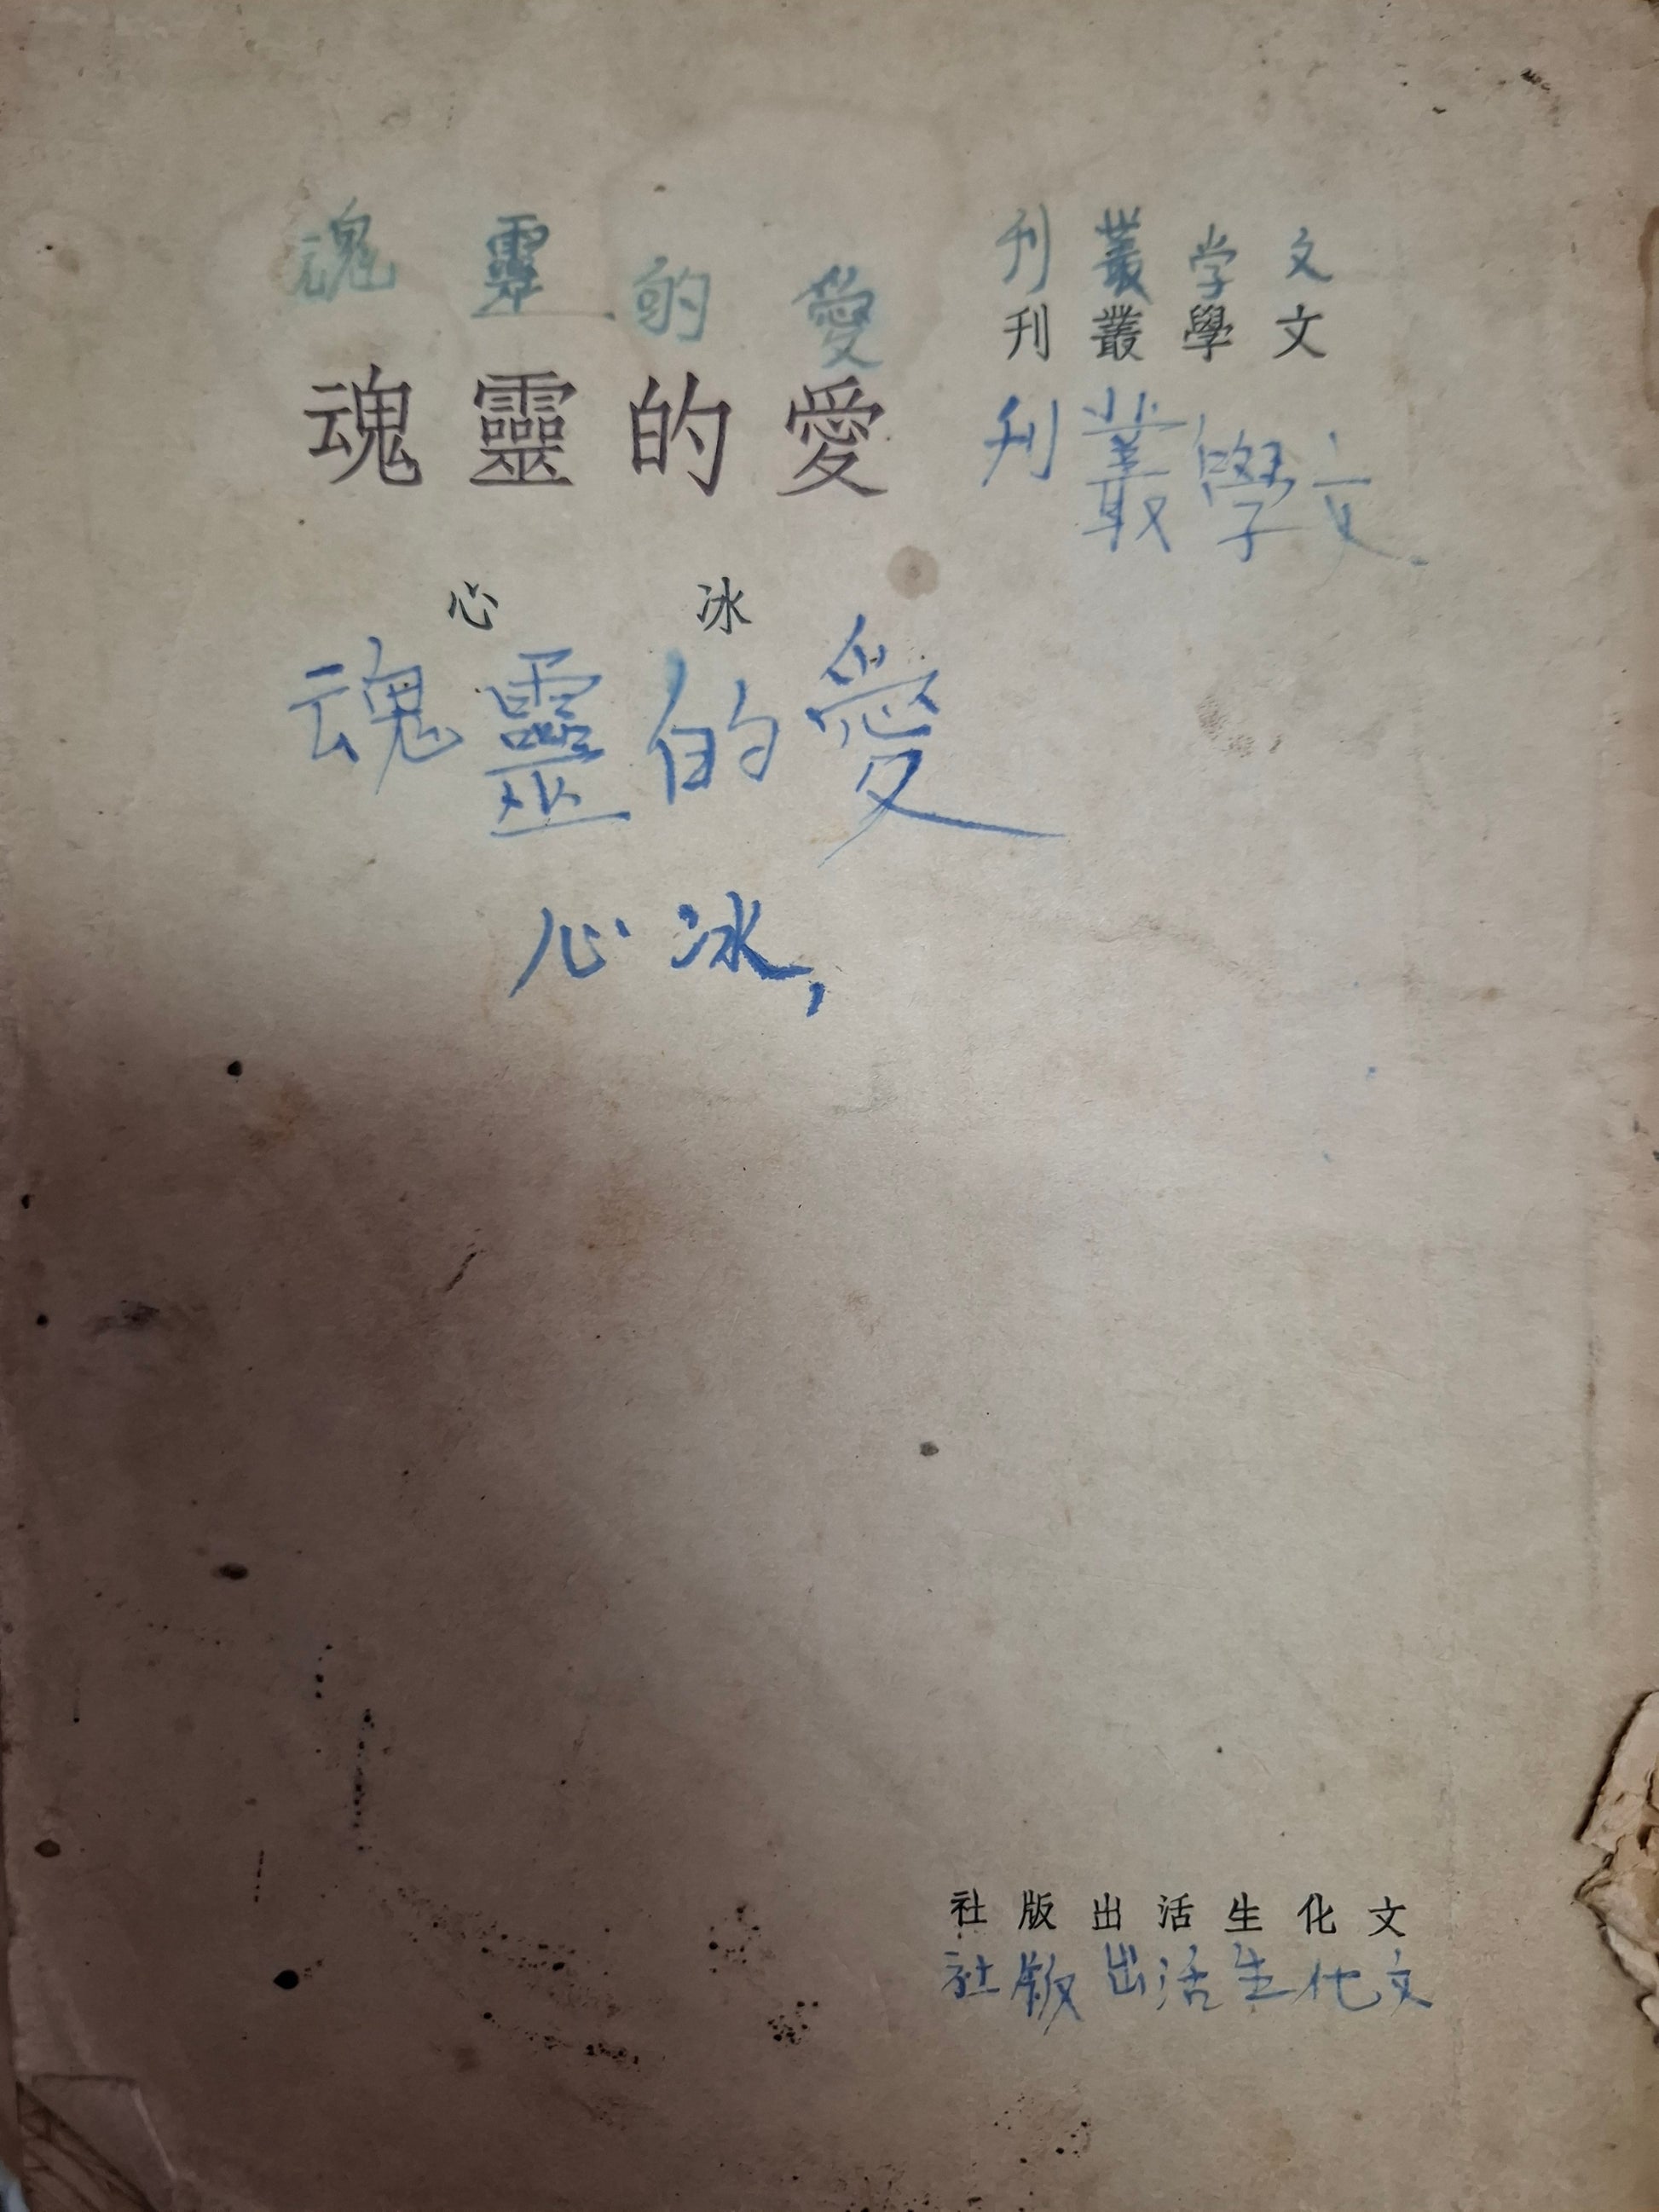 文学叢刊
文學叢刊
文學叢刊
愛的靈魂
愛的靈魂
冰心
愛的靈魂
冰心
文化生活出版社
文化生活出版社